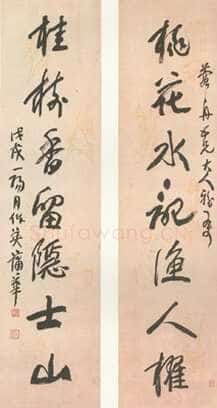 舟 兄大人雅屬
桃花水記漁人櫂
桂樹香留隱士山
戊戌一陽月作英蒲華
Shufawang.cn